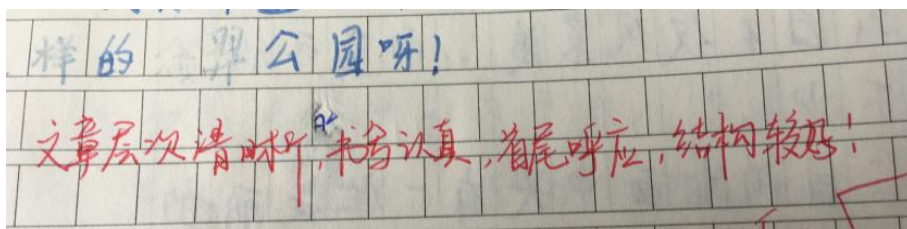 样的 公园呀!
文章层次清晰,书写认真,首尾呼应,结构较好!